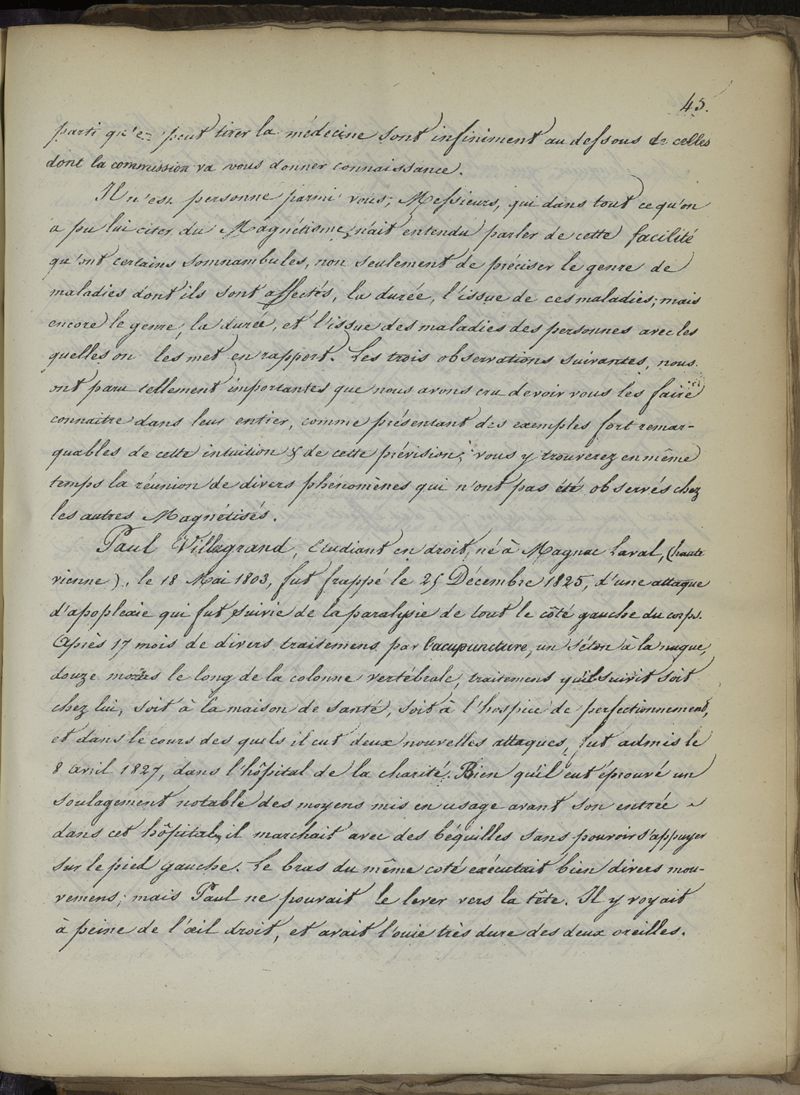 45.
parti qu'en peut tirer la médecine sont infiniment au dessous de celles
dont la commission va vous donner connaissance.
Il n'est personne parmi vous, Messieurs, qui dans tout ce qu'on
a pu lui citer du Magnétisme, n'ait entendu parler de cette facilité
qu'ont certains somnambules, non seulement de préciser le genre de
maladies dont ils sont affectés, la durée, l'issue de ces maladies; mais
encore le genre, la durée, et l'issue des maladies des personnes avec les
quelles on les met en rapport. Les trois observations suivantes, nous
ont paru tellement importantes que nous avons cru devoir vous les faire
connaitre dans leur entier, comme présentant des exemples fort remar-
quables de cette intuition & de cette prévision; vous y trouverez en même
temps la réunion de divers phénomènes qui n'ont pas été observés chez
les autres Magnétisés.
Paul Villagrand, Etudiant en droit, né à Magnac Laval, (haute
vienne), le 18 Mai 1803, fut frappé le 25 Décembre 1825, d'une attaque
d'apoplexie qui fut suivie de la paralysie de tout le côté gauche du corps.
Après 17 mois de divers traitemens par l'acupuncture, un séton à la nuque,
douze moxas le long de la colonne vertébrale, traitemens qu'il suivit soit
chez lui, soit à la maison de santé, soit à l'hospice de perfectionnement,
et dans le cours des quels il eut deux nouvelles attaques, fut admis le
8 avril 1827, dans l'hôpital de la charité. Bien qu'il eut éprouvé un
soulagement notable des moyens mis en usage avant son entrée
dans cet hôpital, il marchait avec des béquilles sans pouvoir s'appuyer
sur le pied gauche. Le bras du même coté exécutait bien divers mou-
vemens; mais Paul ne pouvait le lever vers la tête. Il y voyait
à peine de l'œil droit, et avait l'ouie très dure des deux oreilles.